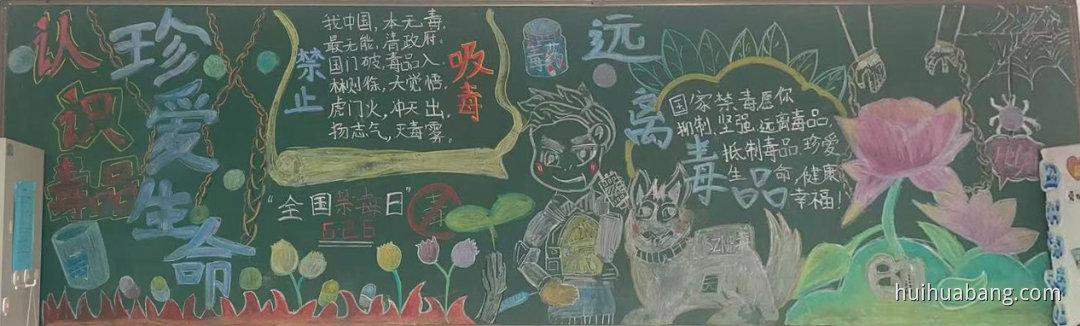 认识毒品
珍爱生命
禁止
吸毒
我中国,本无毒.
最无能,清政府.
国门破,毒品入.
林则徐,大觉悟.
虎门火,冲天出.
扬志气,灭毒雾.
“全国禁毒日”
6.26
毒
毒药
远离毒品
国家禁毒愿你
抑制.坚强.远离毒品,
抵制毒品.珍爱
生命,健康
幸福!
huihuabang.com